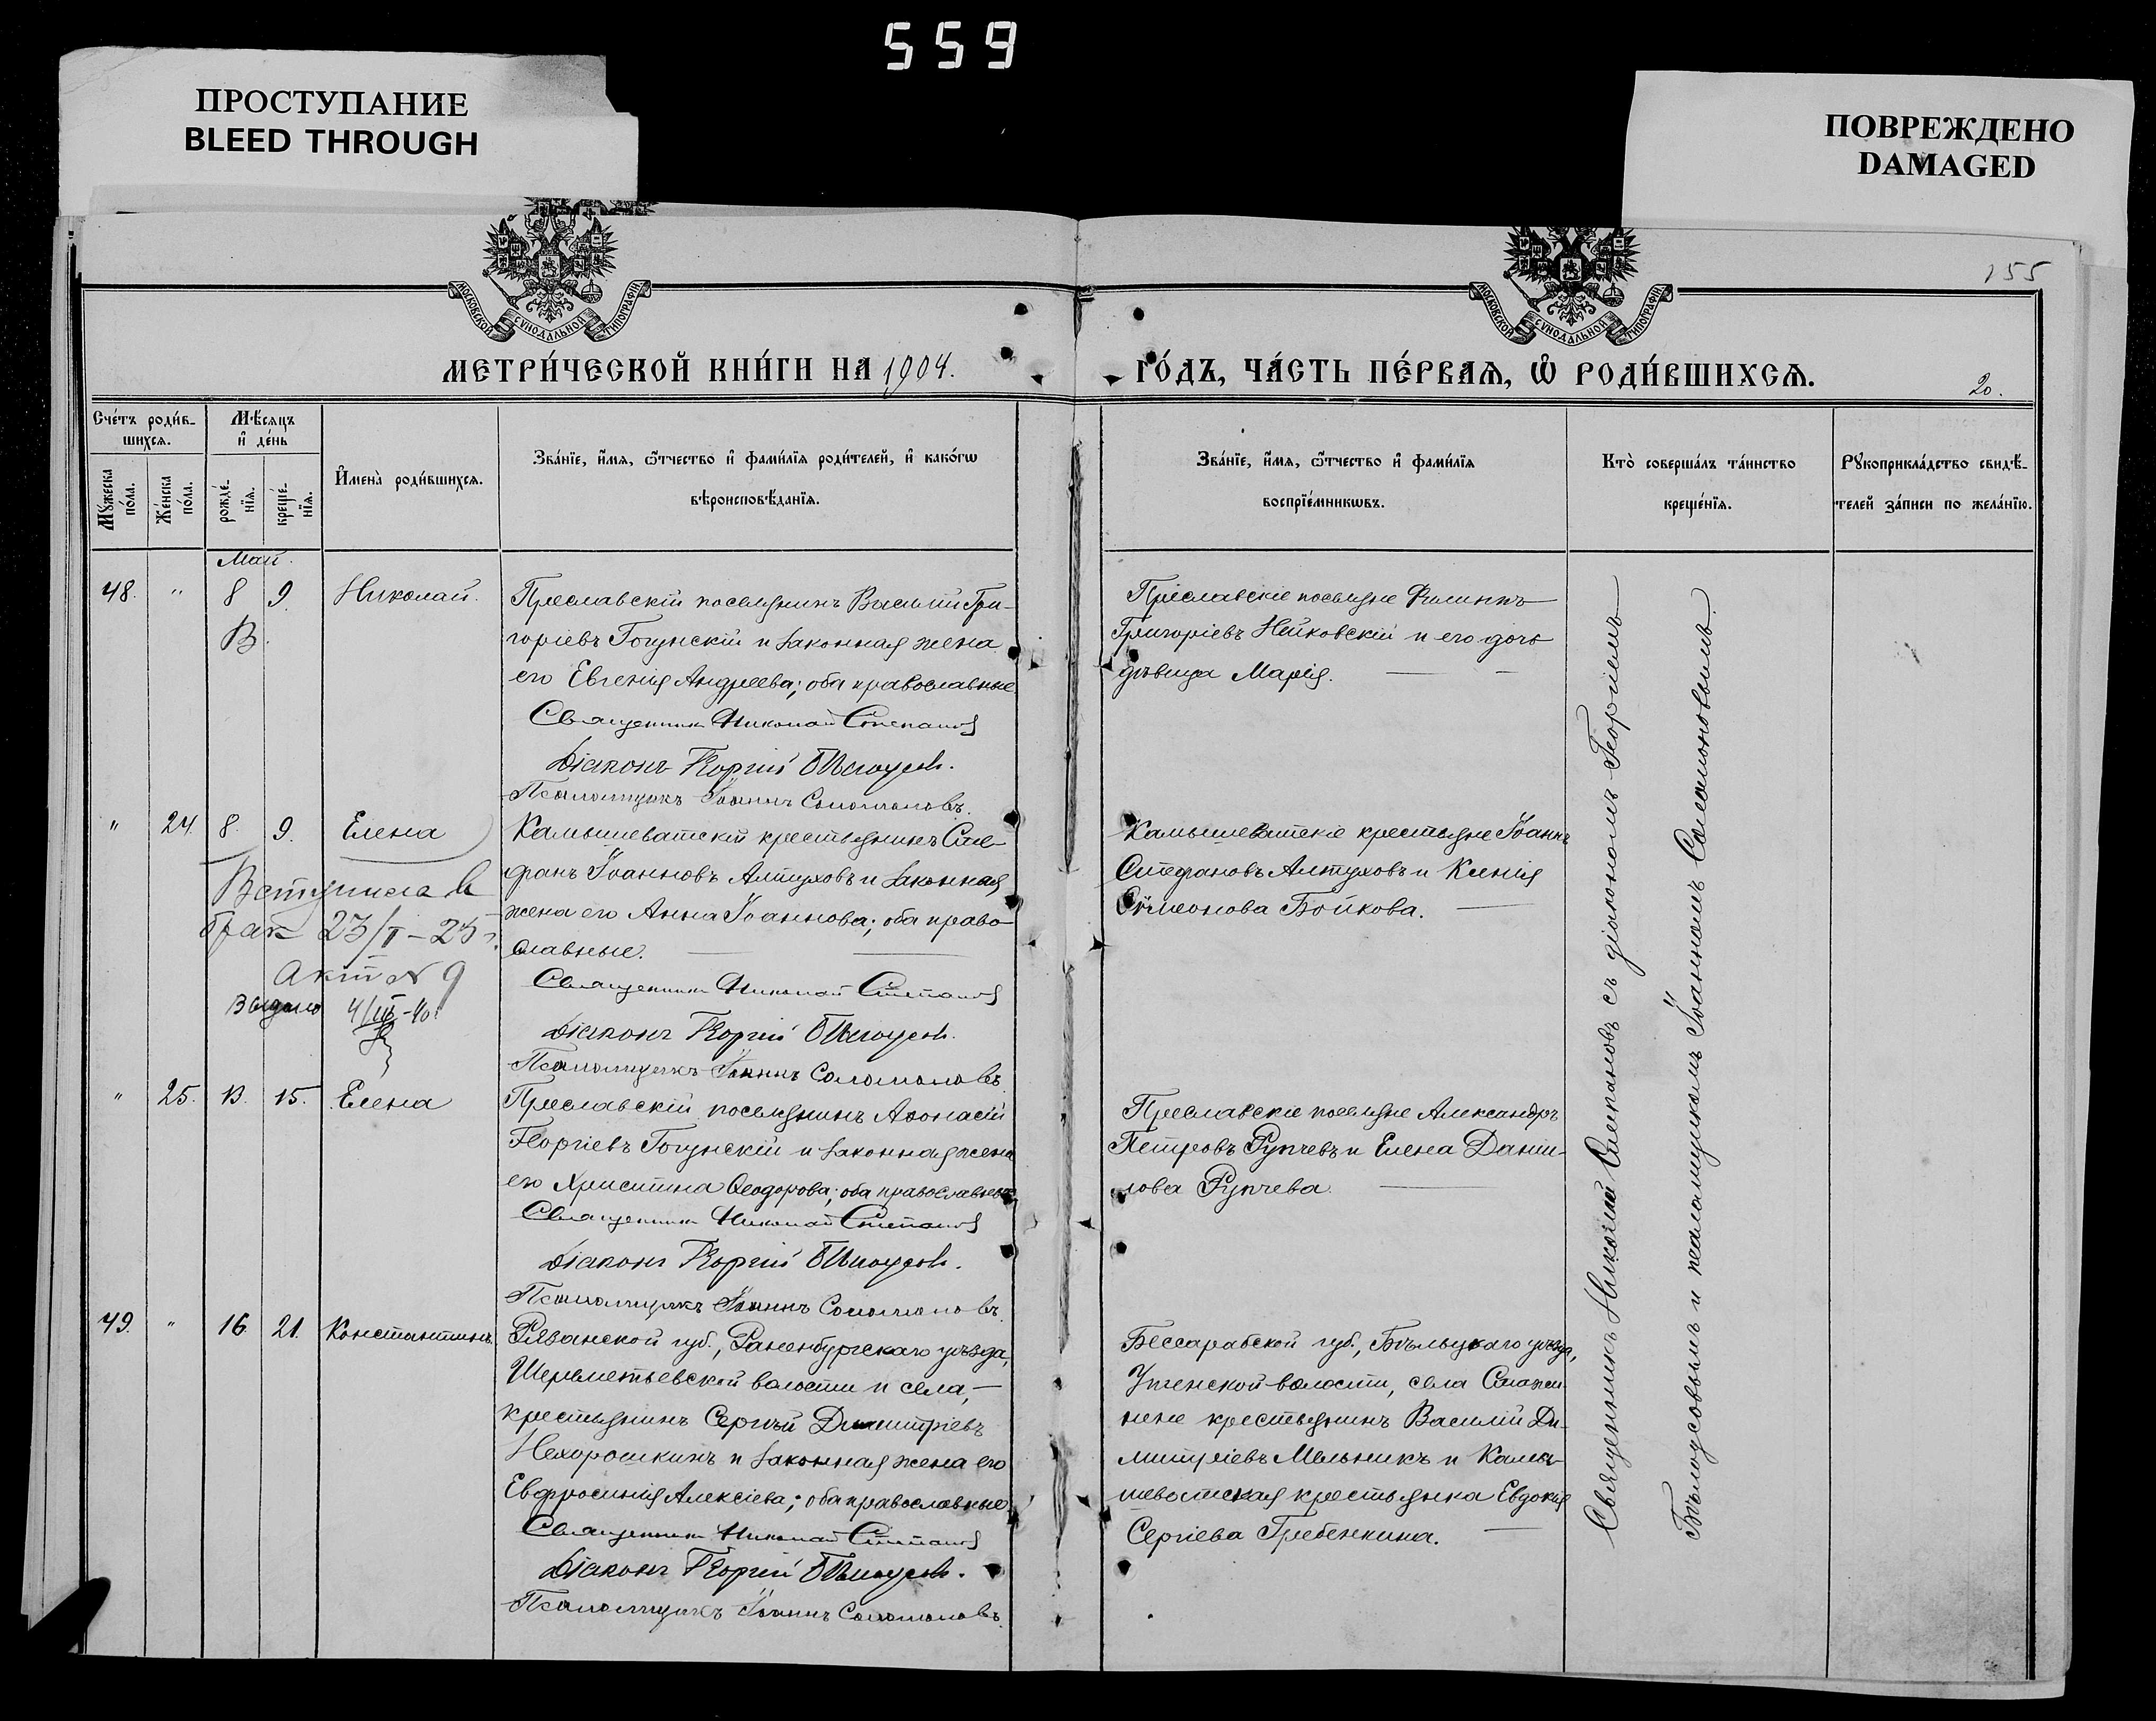 559
ПРОСТУПАНИЕ
BLEED THROUGH
ПОВРЕЖДЕНО
DAMAGED
МОСКОВСКОЙ СѴНОДАЛЬНОЙ ТИПОГРАФІИ
МОСКОВСКОЙ СѴНОДАЛЬНОЙ ТИПОГРАФІИ
155
МЕТРИ́ЧЕСКОЙ КНИ́ГИ НА 1904.
ГО́ДЪ, ЧА́СТЬ ПЕ́РВАѦ, Ѡ҆ РОДИ́ВШИХСѦ.
20.
Сче́тъ роди́в-
шихсѧ.
Мꙋ́жеска по́ла.
Же́нска по́ла.
Мѣ́сѧцъ
и҆ де́нь
рожде́-
нїѧ.
креще́-
нїѧ.
И҆мена̀ роди́вшихсѧ.
Зва́нїе, и҆́мѧ, ѻ҆́тчество и҆ фами́лїѧ роди́телей, и҆ како́гѡ
вѣроисповѣ́данїѧ.
Зва́нїе, и҆́мѧ, ѻ҆́тчество и҆ фами́лїѧ
воспрїе́мникѡвъ.
Кто̀ соверша́лъ та́инство
креще́нїѧ.
Рꙋкоприкла́дство свидѣ́-
телей за́писи по жела́нїю.
Май.
48. " 8 9. Николай.
В.
Преславскій поселянинъ Василій Гри-
горіевъ Гогунскій и законная жена
его Евгенія Андреева; оба православные
Священникъ Николай Степановъ
Діаконъ Георгій Бѣлоусовъ.
Псаломщикъ Іоаннъ Соломоновъ.
Преславскіе поселяне Филиппъ
Григоріевъ Нейковскій и его дочь
дѣвица Марія.
" 24. 8. 9. Елена
Вступила в
брак 23/I-25 г.
акт № 9
Выдано 4/III-40
Камышеватскій крестьянинъ Сте-
фанъ Іоанновъ Алтуховъ и законная
жена его Анна Іоаннова; оба право-
славные.
Священникъ Николай Степановъ
Діаконъ Георгій Бѣлоусовъ.
Псаломщикъ Іоаннъ Соломоновъ
Камышеватскіе крестьяне Іоаннъ
Стефановъ Алтуховъ и Ксенія
Сѵмеонова Бойкова.
" 25. 13. 15. Елена
Преславскій поселянинъ Аѳонасій
Георгіевъ Гогунскій и законная жена
его Христина Ѳеодорова; оба православные
Священникъ Николай Степановъ
Діаконъ Георгій Бѣлоусовъ.
Псаломщикъ Іоаннъ Соломоновъ
Преславскіе поселяне Александръ
Петровъ Рупчевъ и Елена Дании-
лова Рупчева.
49. " 16. 21. Константинъ.
Рязанской губ., Раненбургскаго уѣзда,
Шереметьевской волости и села,
крестьянинъ Сергѣй Димитріевъ
Нехорошкинъ и законная жена его
Евфросинія Алексіева; оба православные.
Священникъ Николай Степановъ
Діаконъ Георгій Бѣлоусовъ.
Псаломщикъ Іоаннъ Соломоновъ.
Бессарабской губ., Бѣльцкаго уѣзда,
волости, села
крестьянинъ Василій Ди-
митріевъ Мельникъ и Камы-
шеватская крестьянка Евдокія
Сергіева Гребенкина.
Священникъ Николай Степановъ съ діакономъ Георгіемъ
Бѣлоусовымъ и псаломщикомъ Іоанномъ Соломоновымъ.